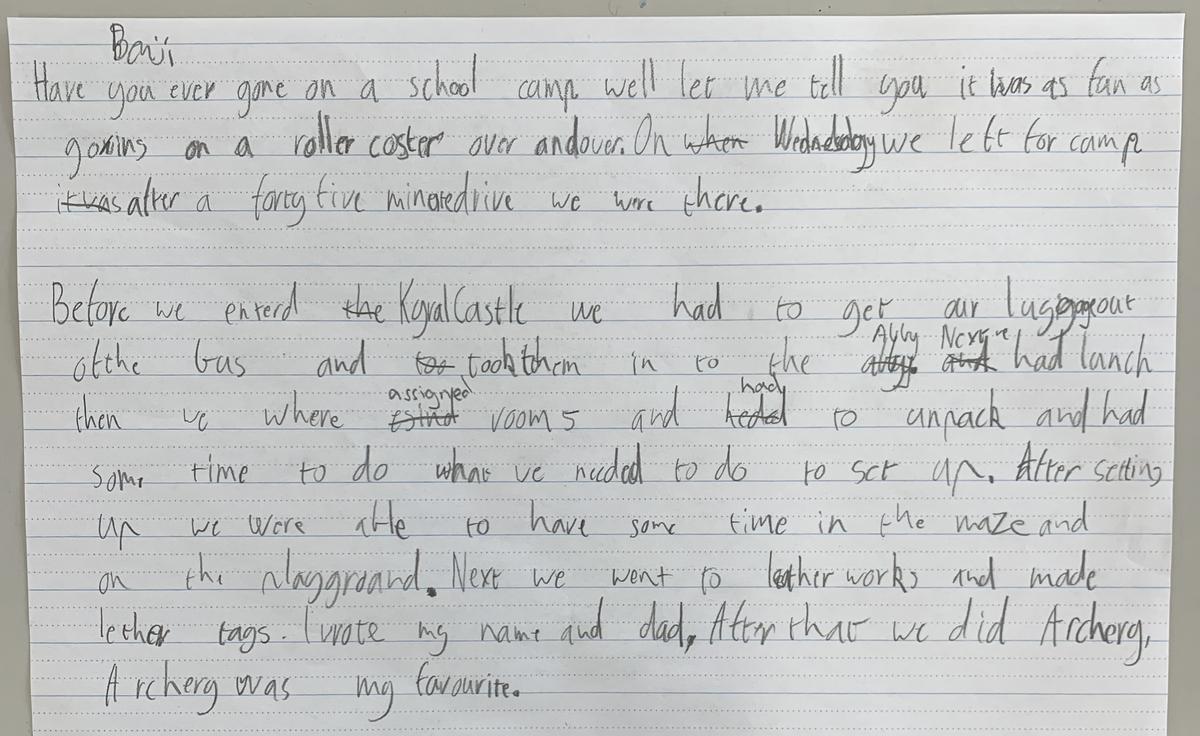 Baiji
Have you ever gone on a school camp well let me tell you it was as fun as
goxins on a roller coster over andover. On when Wednesday we left for camp
it was after a forty five minate drive we were there.
Before we enterd the Kyral Castle we had to get our luggage out
Abby Next we
of the bus and too took them in to the abbey and had lunch
assigned had
then we where rooms and to unpack and had
some time to do what we needed to do to set up. After setting
up we were able to have some time in the maze and
on the playground. Next we went to leather works and made
lether tags. I wrote my name and dad, After that we did Archery,
Archery was my favourite.